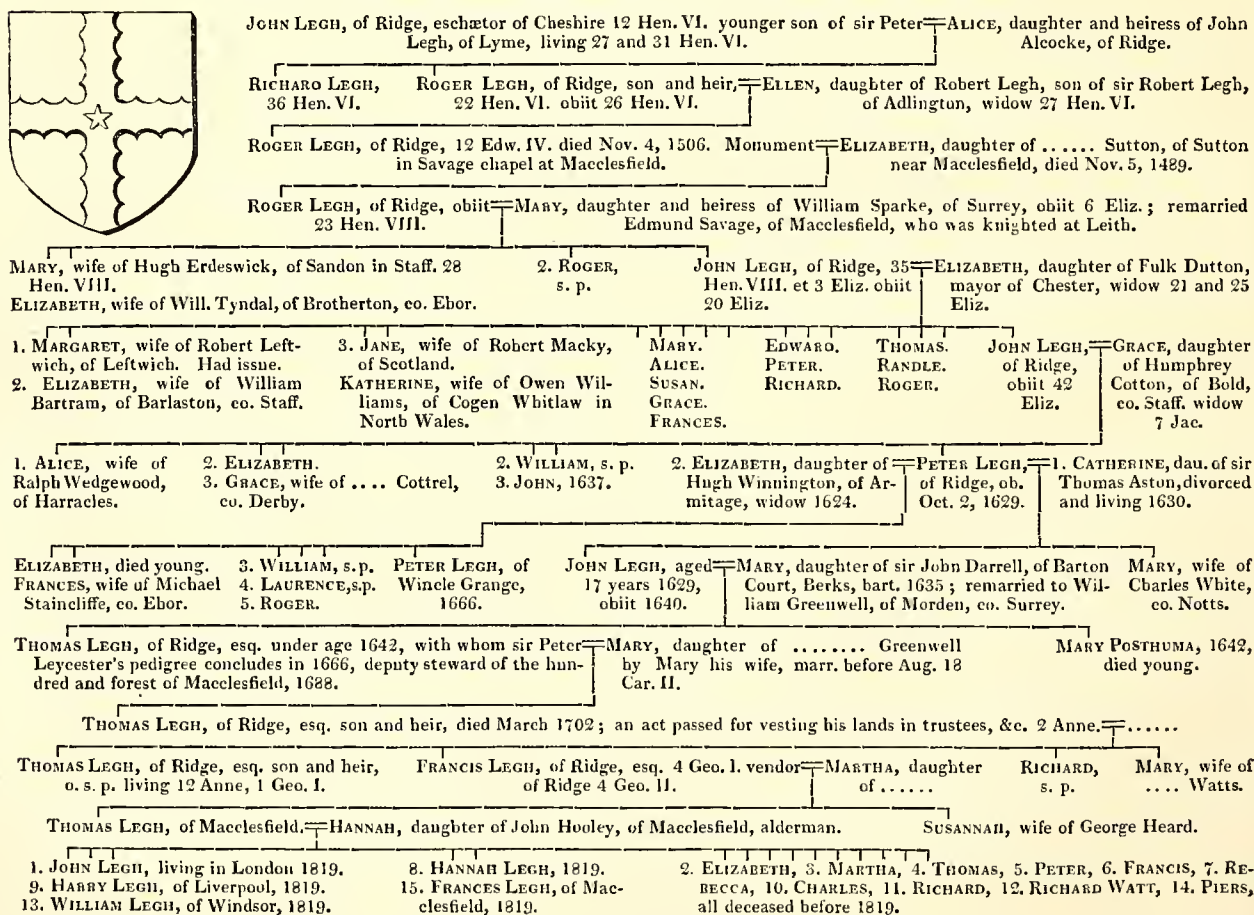 JOHN LEGH, of Ridge, eschætor of Cheshire 12 Hen. VI. younger son of sir Peter
Legh, of Lyme, living 27 and 31 Hen. VI.
ALICE, daughter and heiress of John
Alcocke, of Ridge.
RICHARD LEGH,
36 Hen. VI.
ROGER LEGH, of Ridge, son and heir,
22 Hen. VI. obiit 26 Hen. VI.
ELLEN, daughter of Robert Legh, son of sir Robert Legh,
of Adlington, widow 27 Hen. VI.
ROGER LEGH, of Ridge, 12 Edw. IV. died Nov. 4, 1506. Monument
in Savage chapel at Macclesfield.
ELIZABETH, daughter of ...... Sutton, of Sutton
near Macclesfield, died Nov. 5, 1489.
ROGER LEGH, of Ridge, obiit
23 Hen. VIII.
MARY, daughter and heiress of William Sparke, of Surrey, obiit 6 Eliz.; remarried
Edmund Savage, of Macclesfield, who was knighted at Leith.
MARY, wife of Hugh Erdeswick, of Sandon in Staff. 28
Hen. VIII.
ELIZABETH, wife of Will. Tyndal, of Brotherton, co. Ebor.
2. ROGER,
s. p.
JOHN LEGH, of Ridge, 35
Hen. VIII. et 3 Eliz. obiit
20 Eliz.
ELIZABETH, daughter of Fulk Dutton,
mayor of Chester, widow 21 and 25
Eliz.
1. MARGARET, wife of Robert Left-
wich, of Leftwich. Had issue.
2. ELIZABETH, wife of William
Bartram, of Barlaston, co. Staff.
3. JANE, wife of Robert Macky,
of Scotland.
KATHERINE, wife of Owen Wil-
liams, of Cogen Whitlaw in
North Wales.
MARY.
ALICE.
SUSAN.
GRACE.
FRANCES.
EDWARD.
PETER.
RICHARD.
THOMAS.
RANDLE.
ROGER.
JOHN LEGH,
of Ridge,
obiit 42
Eliz.
GRACE, daughter
of Humphrey
Cotton, of Bold,
co. Staff. widow
7 Jac.
1. ALICE, wife of
Ralph Wedgewood,
of Harracles.
2. ELIZABETH.
3. GRACE, wife of .... Cottrel,
co. Derby.
2. WILLIAM, s. p.
3. JOHN, 1637.
2. ELIZABETH, daughter of
Hugh Winnington, of Ar-
mitage, widow 1624.
PETER LEGH,
of Ridge, ob.
Oct. 2, 1629.
1. CATHERINE, dau. of sir
Thomas Aston, divorced
and living 1630.
ELIZABETH, died young.
FRANCES, wife of Michael
Staincliffe, co. Ebor.
3. WILLIAM, s. p.
4. LAURENCE, s. p.
5. ROGER.
PETER LEGH, of
Wincle Grange,
1666.
JOHN LEGH, aged
17 years 1629,
obiit 1640.
MARY, daughter of sir John Darrell, of Barton
Court, Berks, bart. 1635; remarried to Wil-
liam Greenwell, of Morden, co. Surrey.
MARY, wife of
Charles White,
co. Notts.
THOMAS LEGH, of Ridge, esq. under age 1642, with whom sir Peter
Leycester's pedigree concludes in 1666, deputy steward of the hun-
dred and forest of Macclesfield, 1688.
MARY, daughter of ........ Greenwell
by Mary his wife, marr. before Aug. 18
Car. II.
MARY POSTHUMA, 1642,
died young.
THOMAS LEGH, of Ridge, esq. son and heir, died March 1702; an act passed for vesting his lands in trustees, &c. 2 Anne. ......
THOMAS LEGH, of Ridge, esq. son and heir,
o. s. p. living 12 Anne, 1 Geo. I.
FRANCIS LEGH, of Ridge, esq. 4 Geo. I. vendor
of Ridge 4 Geo. II.
MARTHA, daughter
of ......
RICHARD,
s. p.
MARY, wife of
.... Watts.
THOMAS LEGH, of Macclesfield.
HANNAH, daughter of John Hooley, of Macclesfield, alderman.
SUSANNAH, wife of George Heard.
1. JOHN LEGH, living in London 1819.
9. HARRY LEGH, of Liverpool, 1819.
13. WILLIAM LEGH, of Windsor, 1819.
8. HANNAH LEGH, 1819.
15. FRANCES LEGH, of Mac-
clesfield, 1819.
2. ELIZABETH, 3. MARTHA, 4. THOMAS, 5. PETER, 6. FRANCIS, 7. RE-
BECCA, 10. CHARLES, 11. RICHARD, 12. RICHARD WATT, 14. PIERS,
all deceased before 1819.